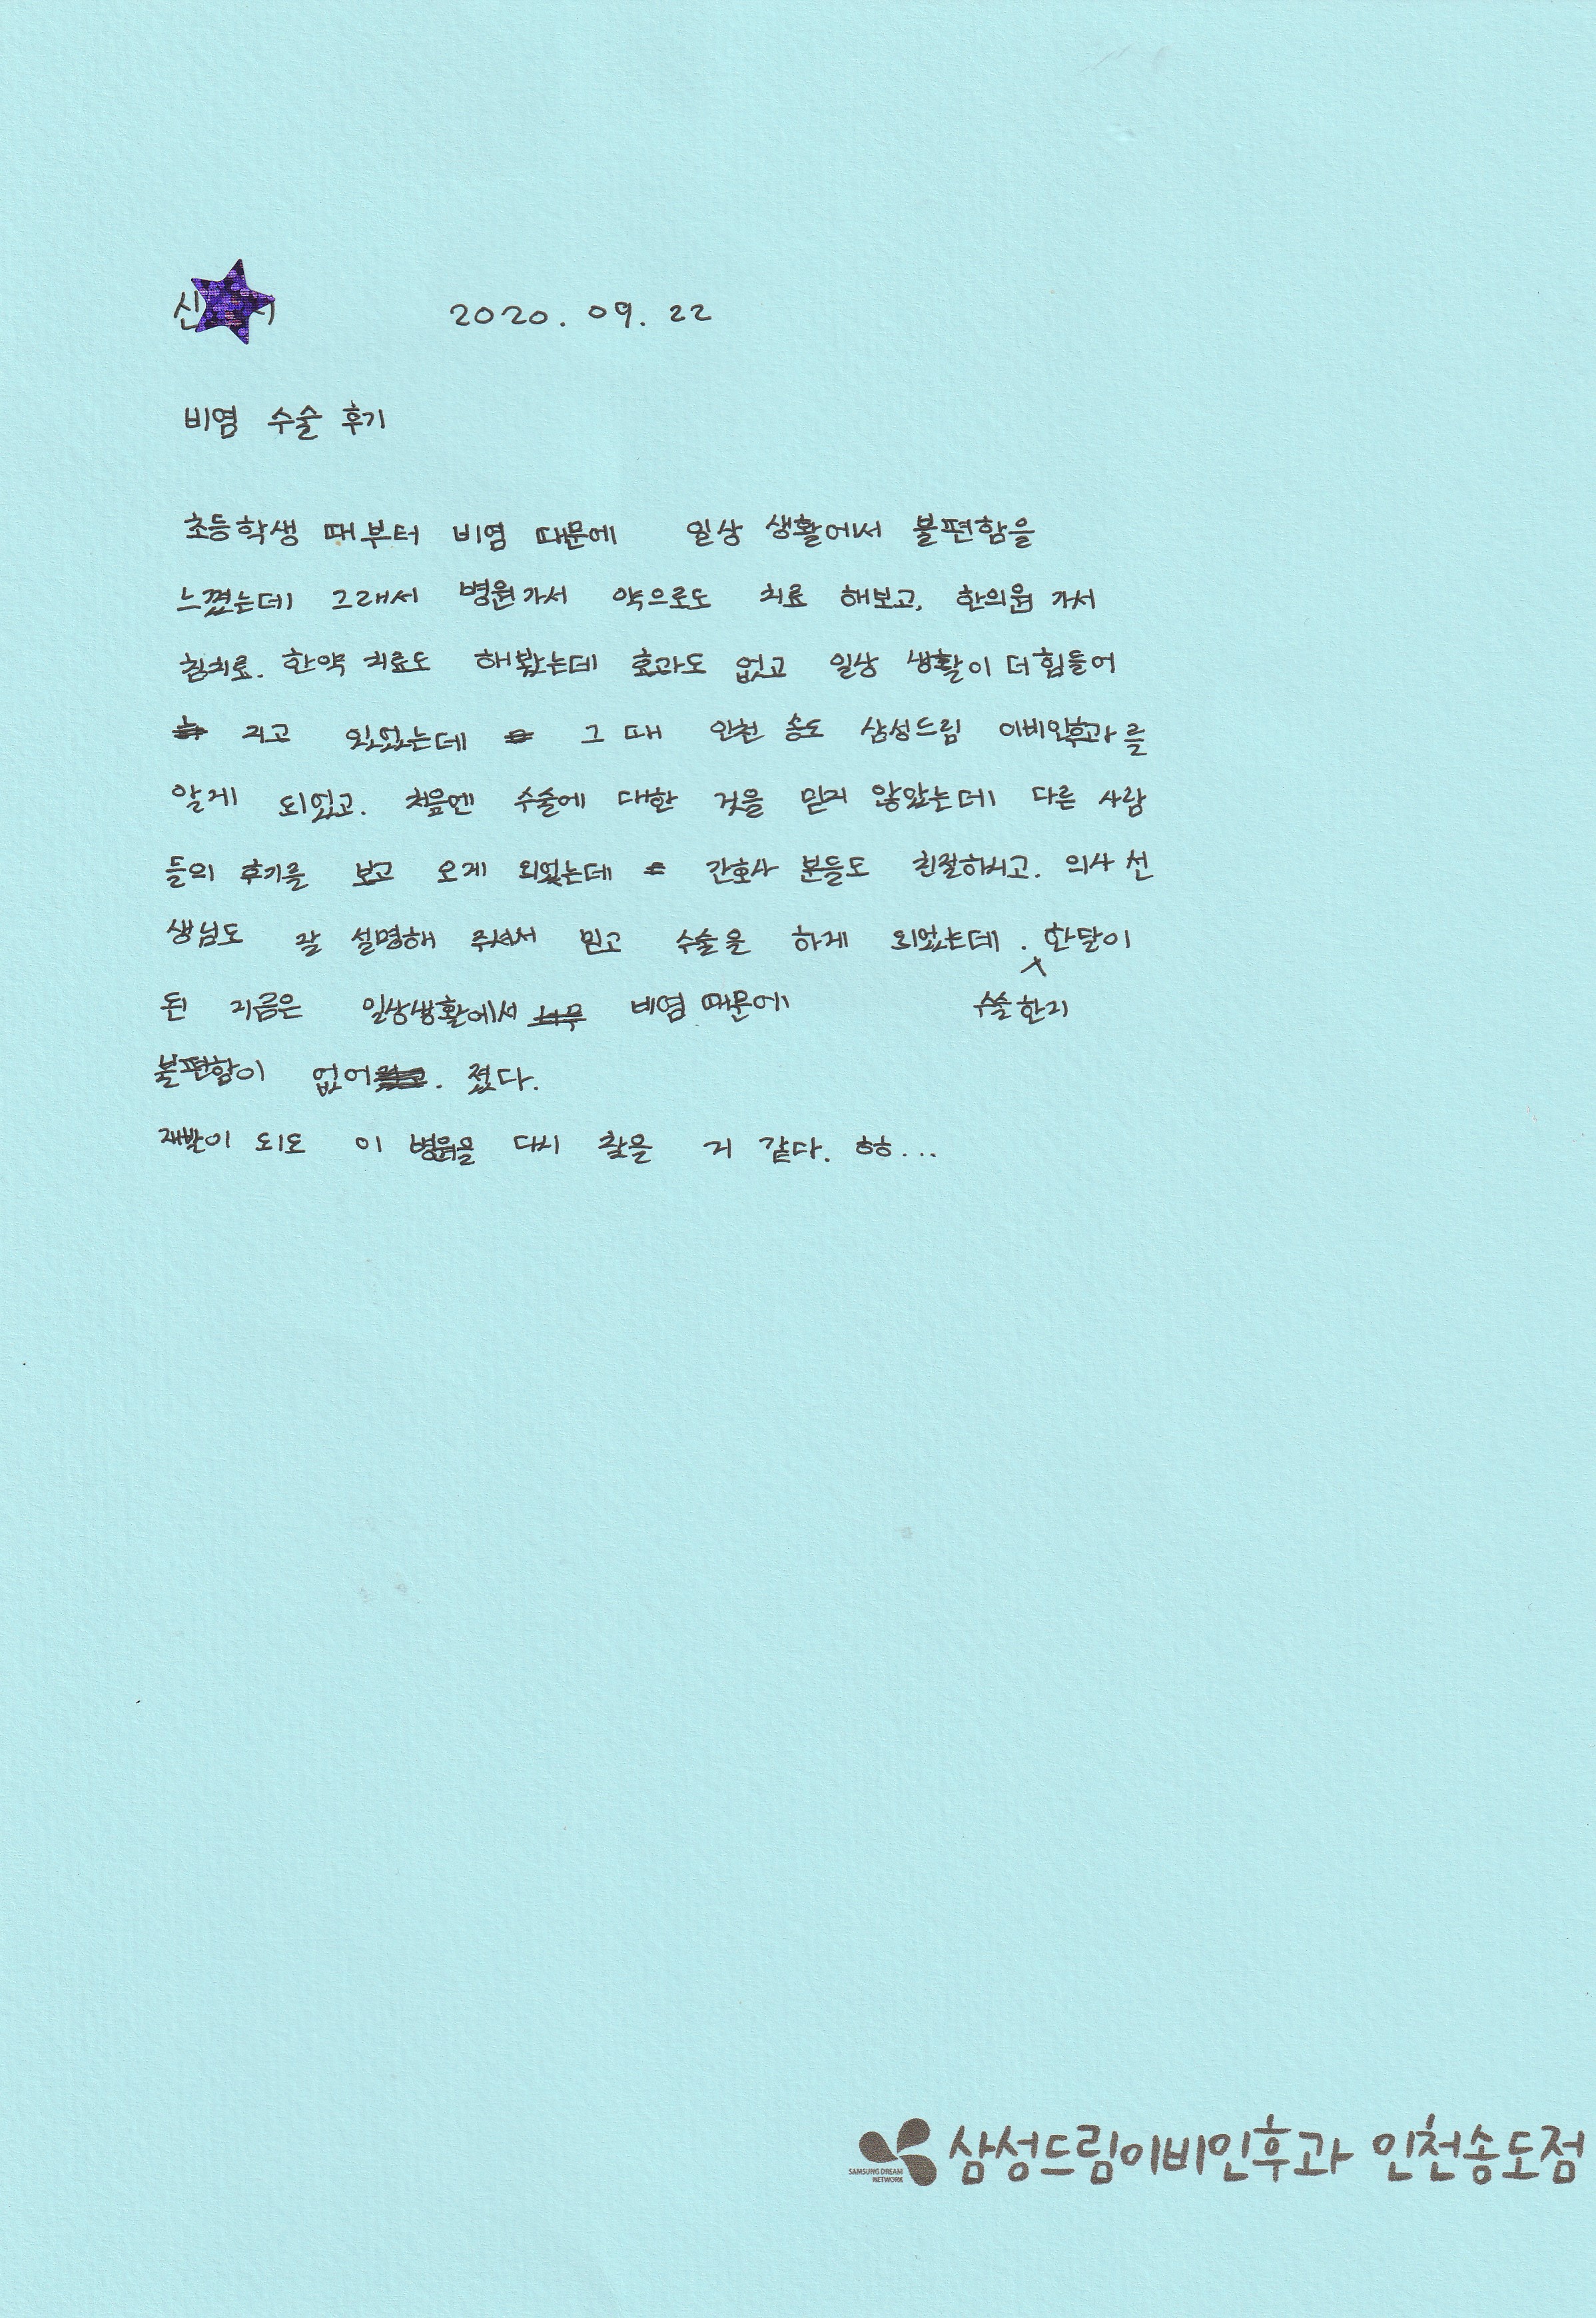 신 2020. 09. 22
비염 수술 후기
초등학생 때부터 비염 때문에 일상 생활에서 불편함을
느꼈는데 그래서 병원가서 약으로도 치료 해보고, 한의원 가서
침치료. 한약 치료도 해봤는데 효과도 없고 일상 생활이 더 힘들어
지고 있었는데 그 때 인천 송도 삼성드림 이비인후과를
알게 되었고. 처음엔 수술에 대한 것을 믿지 않았는데 다른 사람
들의 후기를 보고 오게 되었는데 간호사 분들도 친절하시고. 의사 선
생님도 잘 설명해 주셔서 믿고 수술을 하게 되었는데 . 한달이
수술한지
된 지금은 일상생활에서 비염 때문에
불편함이 없어. 졌다.
재발이 되도 이 병원을 다시 찾을 거 같다. ㅎㅎ...
SAMSUNG DREAM
NETWORK
삼성드림이비인후과 인천송도점